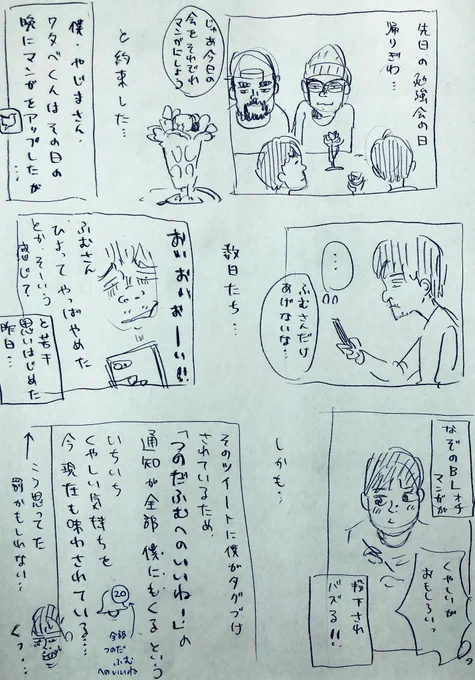 先日の勉強会の日
帰りぎわ…
じゃあ今日の
会をそれぞれ
マンガにしよう
と約束した…
僕・やじまさん・
ワタベくんはその日の
晩にマンガをアップしたが
…
ふむさんだけ
あげないな…
数日たち…
おいおいおーい!!
ふむさん
ひよってやっぱやめた
とか、そーいう
感じ?
と若干
思いはじめた
昨日…
なぞのBLオチ
マンガが
くやしいが
おもしろいっ
投下され
バズる!!
しかも…
そのツイートに僕がタグづけ
されているため、
「つのだふむへのいいね!」の
通知が全部 僕にもくるという
いちいち
くやしい気持ちを
今現在も味わされている…
20
全部
つのだ
ふむ
へのいいね
↑こう思ってた
罰かもしれない…
くっ…